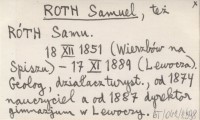 ROTH Samuel, też
RÓTH Samu.
18 XII 1851 (Wierzbów na
Spiszu) – 17 XI 1889 (Lewocza).
Geolog, działacz turyst., od 1874
nauczyciel a od 1887 dyrektor
gimnazjum w Lewoczy.